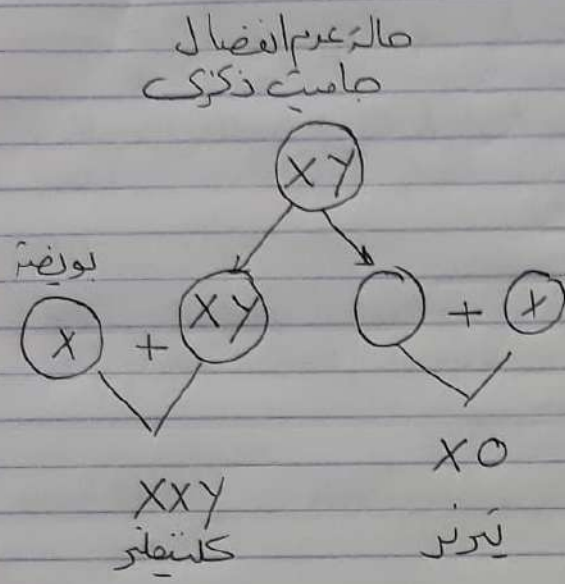 حالة عدم انفصال
جاميت ذكرى
XY
بويضة
X + XY
+ X
XXY
XO
كلينفلتر
تيرنر